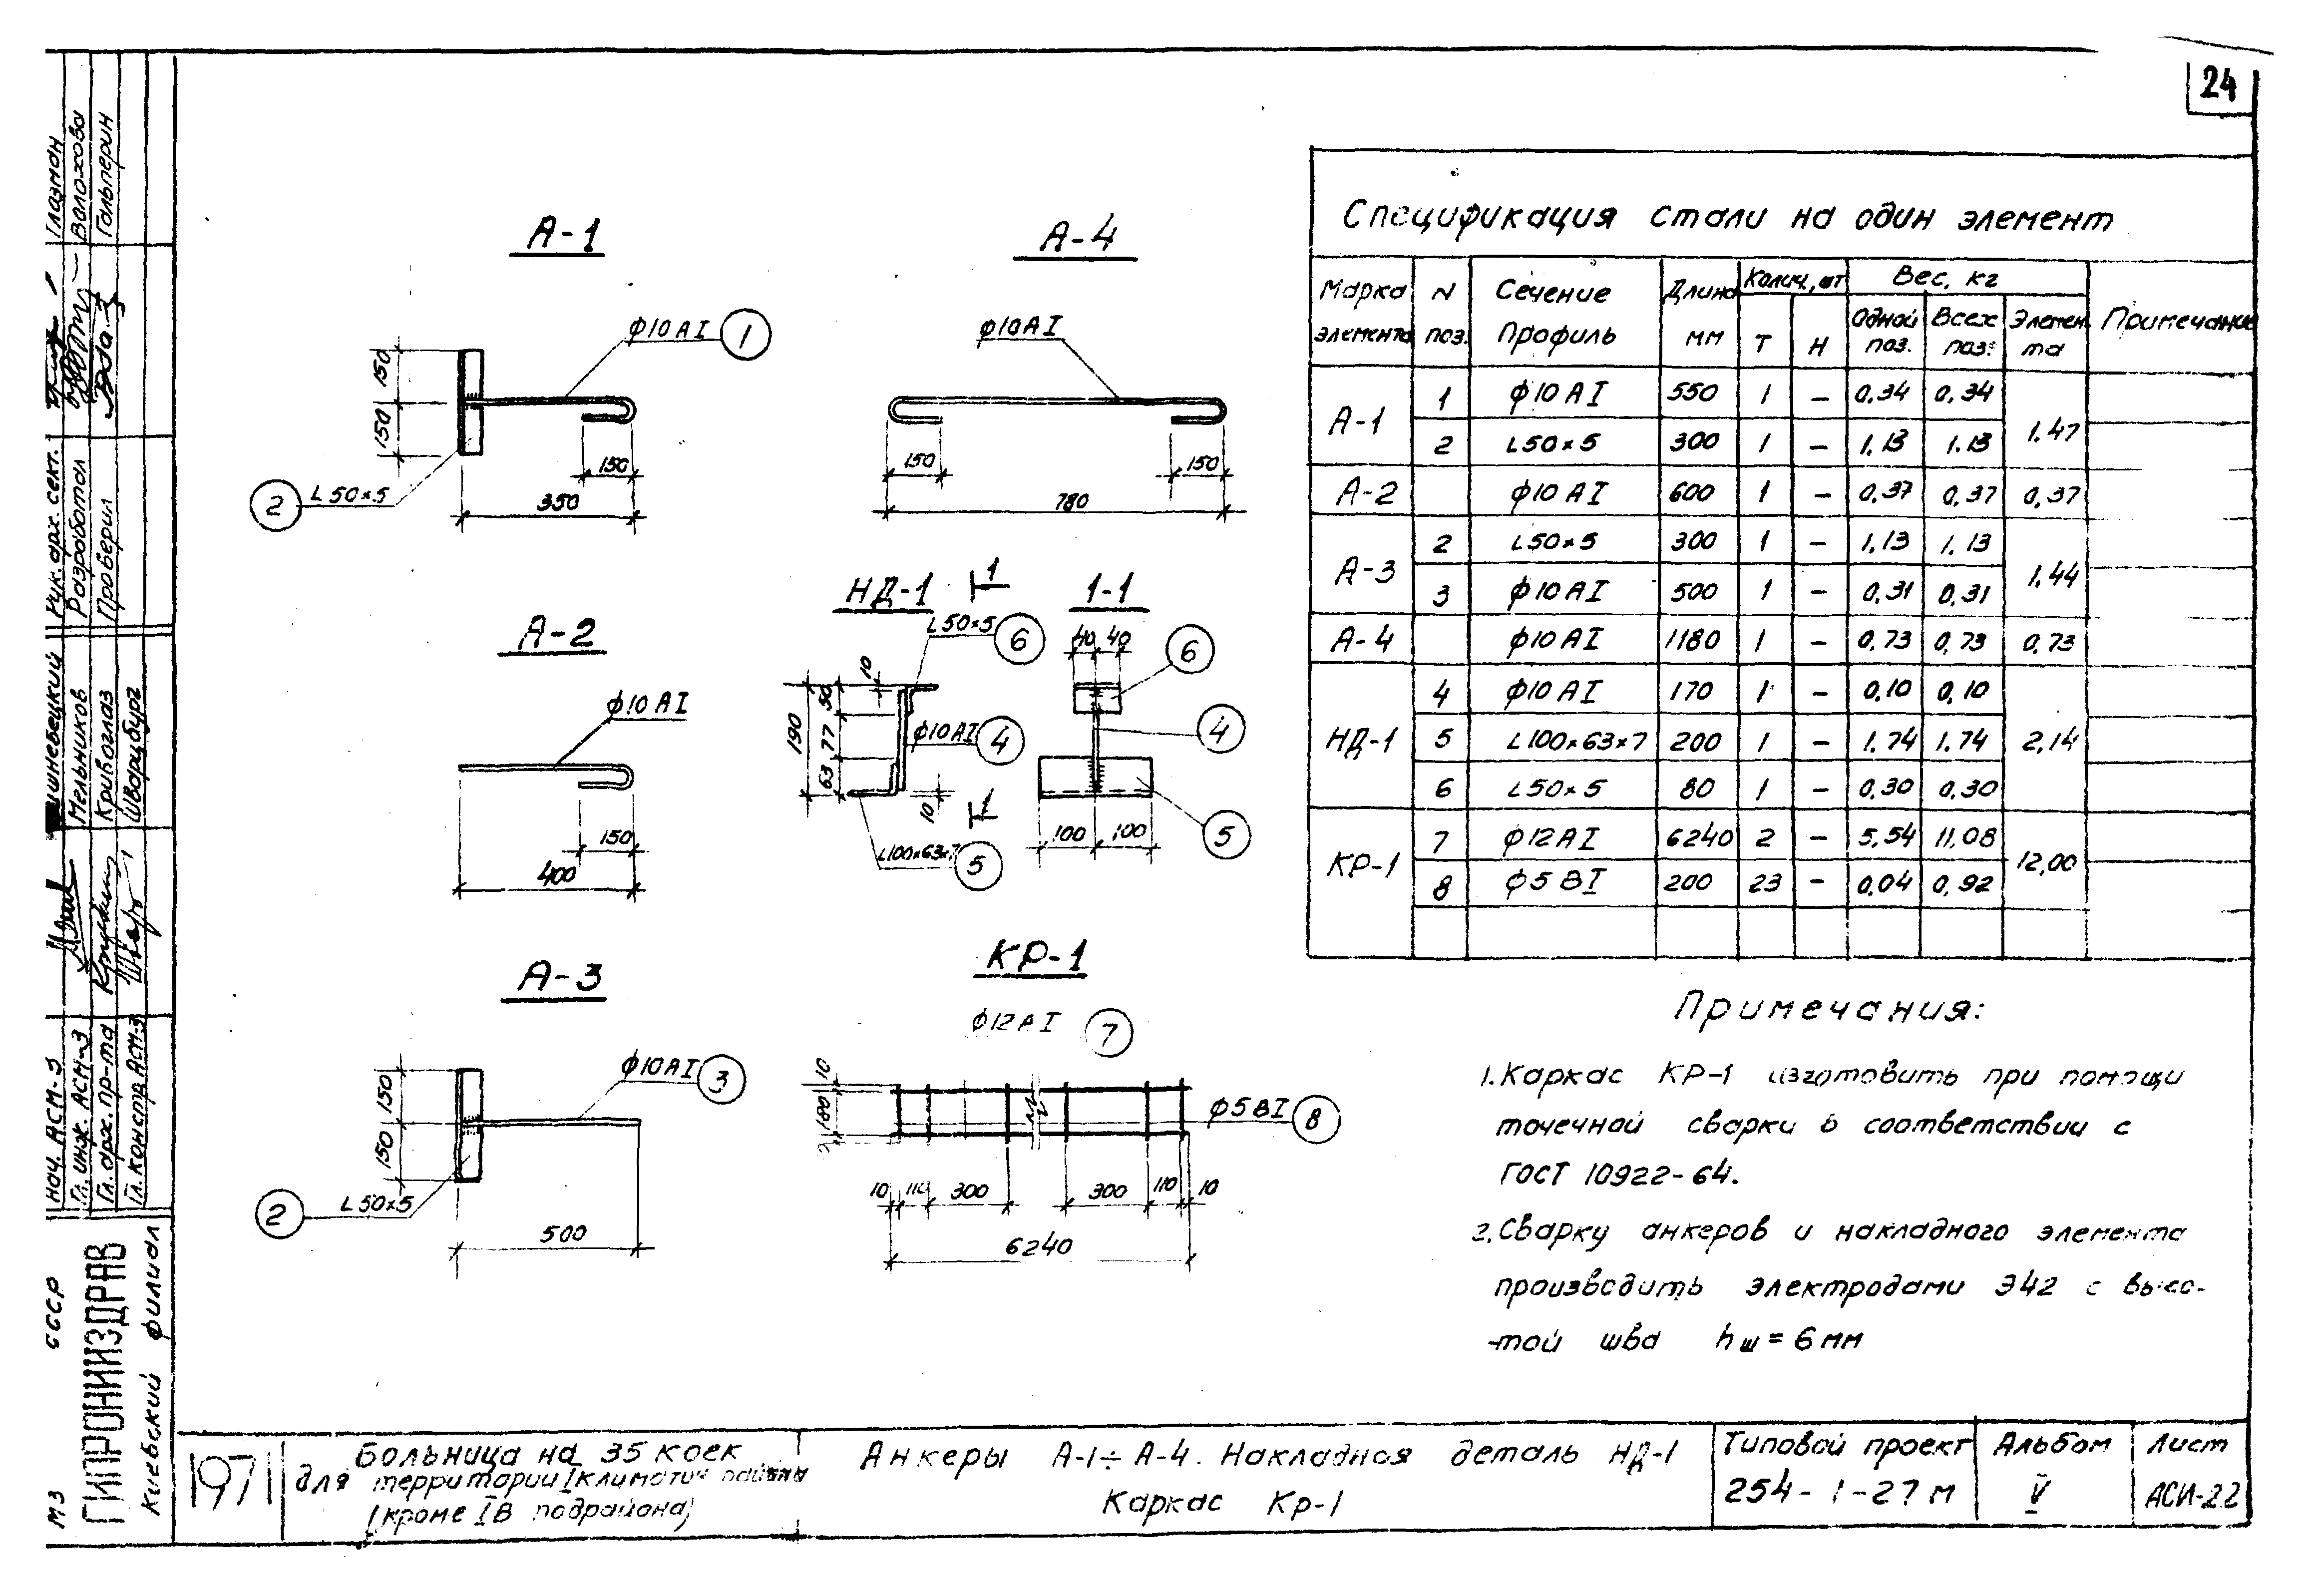 24
А-1
ф10АI 1
150
150
150
350
2 L50×5
А-4
ф10АI
150
150
780
А-2
ф10АI
150
400
НД-1
1
L50×5 6
10
50
77
63
190
ф10АI 4
10
1
L100×63×7 5
1-1
40 40
6
4
5
100 100
А-3
ф10АI 3
150
150
2 L50×5
500
КР-1
ф12АI 7
10
180
ф5ВI 8
10 110 300 300 110 10
6240
Спецификация стали на один элемент
Марка элемента
N поз.
Сечение Профиль
Длина мм
Колич., шт
Т Н
Вес, кг
Одной поз.
Всех поз.
Элемента
Примечание
А-1 1 ф10АI 550 1 – 0,34 0,34 1.47
2 L50×5 300 1 – 1,13 1.13
А-2 ф10АI 600 1 – 0,37 0,37 0,37
А-3 2 L50×5 300 1 – 1,13 1,13 1.44
3 ф10АI 500 1 – 0,31 0,31
А-4 ф10АI 1180 1 – 0,73 0,73 0,73
НД-1 4 ф10АI 170 1 – 0,10 0,10 2,14
5 L100×63×7 200 1 – 1.74 1.74
6 L50×5 80 1 – 0,30 0,30
КР-1 7 ф12АI 6240 2 – 5,54 11,08 12,00
8 ф5ВI 200 23 – 0,04 0,92
Примечания:
1. Каркас КР-1 изготовить при помощи
точечной сварки в соответствии с
ГОСТ 10922-64.
2. Сварку анкеров и накладного элемента
производить электродами Э42 с высо-
-той шва hш = 6 мм
1971
Больница на 35 коек
для территории I климатич района
(кроме IВ подрайона)
Анкеры А-1÷А-4. Накладная деталь НД-1
Каркас Кр-1
Типовой проект
254-1-27м
Альбом
V
Лист
АСИ-22
МЗ СССР
ГИПРОНИИЗДРАВ
Киевский филиал
Нач. АСМ-3
Гл. инж. АСМ-3 Мельников
Гл. арх. пр-та Кривоглаз
Гл. констр. АСМ-3 Шварцбург
Рук. арх. сект. Глазман
Разработал Волохова
Проверил Гальперин